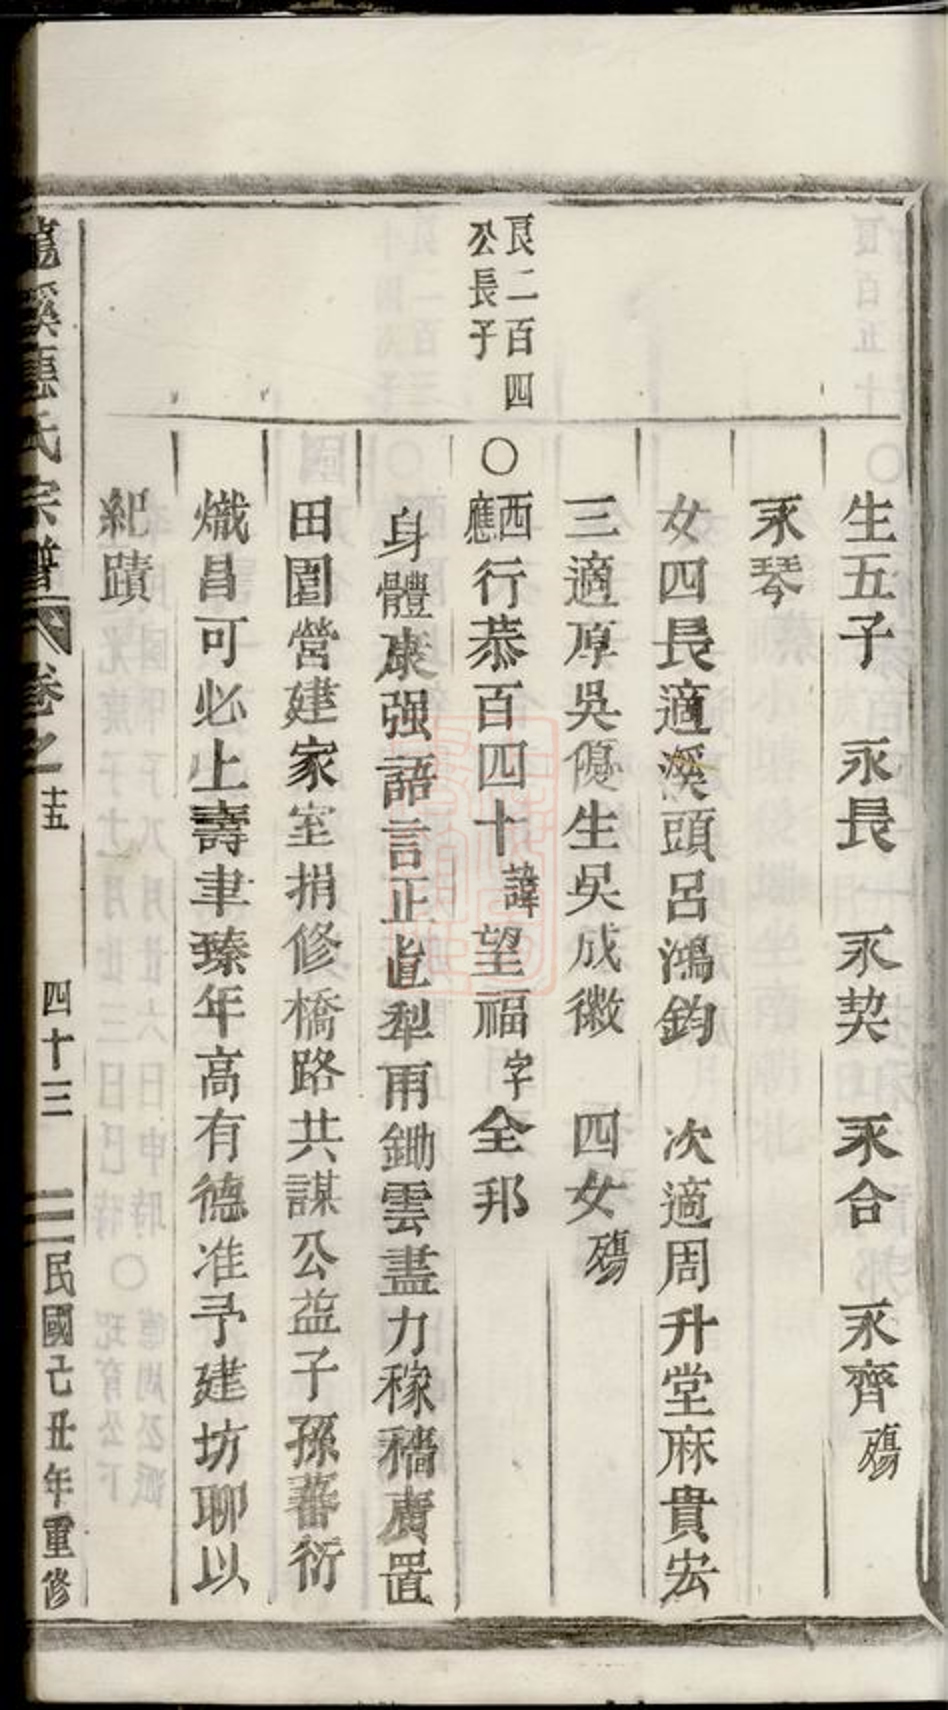 生五子　永長　永契　永合　永齊殤
永琴
女四長適溪頭呂鴻鈞　次適周升堂麻貴宏
三適厚吳優生吳成徽　四女殤
良二百四
公長子
〇西應行恭百四十諱望福字全邦
身體康强語言正直犁雨鋤雲盡力稼穡廣置
田園營建家室捐修橋路共謀公益子孫蕃衍
熾昌可必上壽聿臻年高有德准予建坊聊以
紀蹟
溪應氏宗譜　卷之十五　四十三　民國己丑年重修